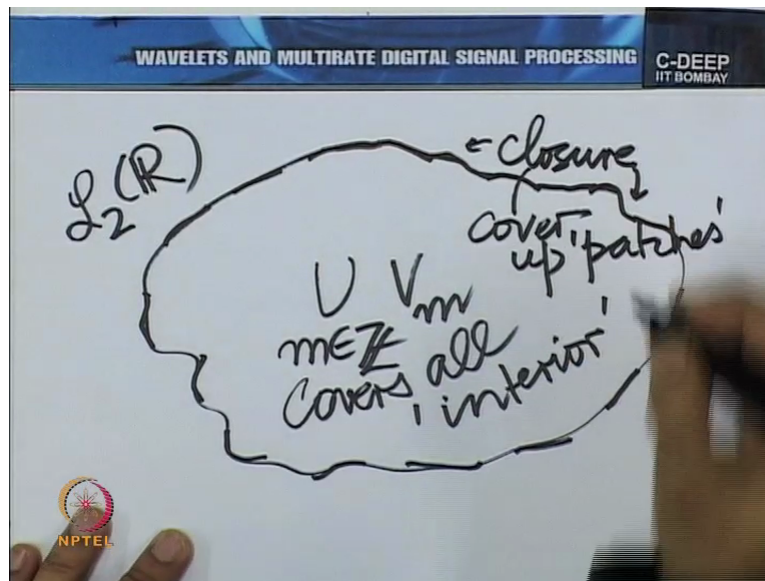 WAVELETS AND MULTIRATE DIGITAL SIGNAL PROCESSING
C-DEEP
IIT BOMBAY
L₂(ℝ)
← closure
cover
up 'patches'
∪ Vₘ
m∈ℤ
covers all
'interior'
NPTEL